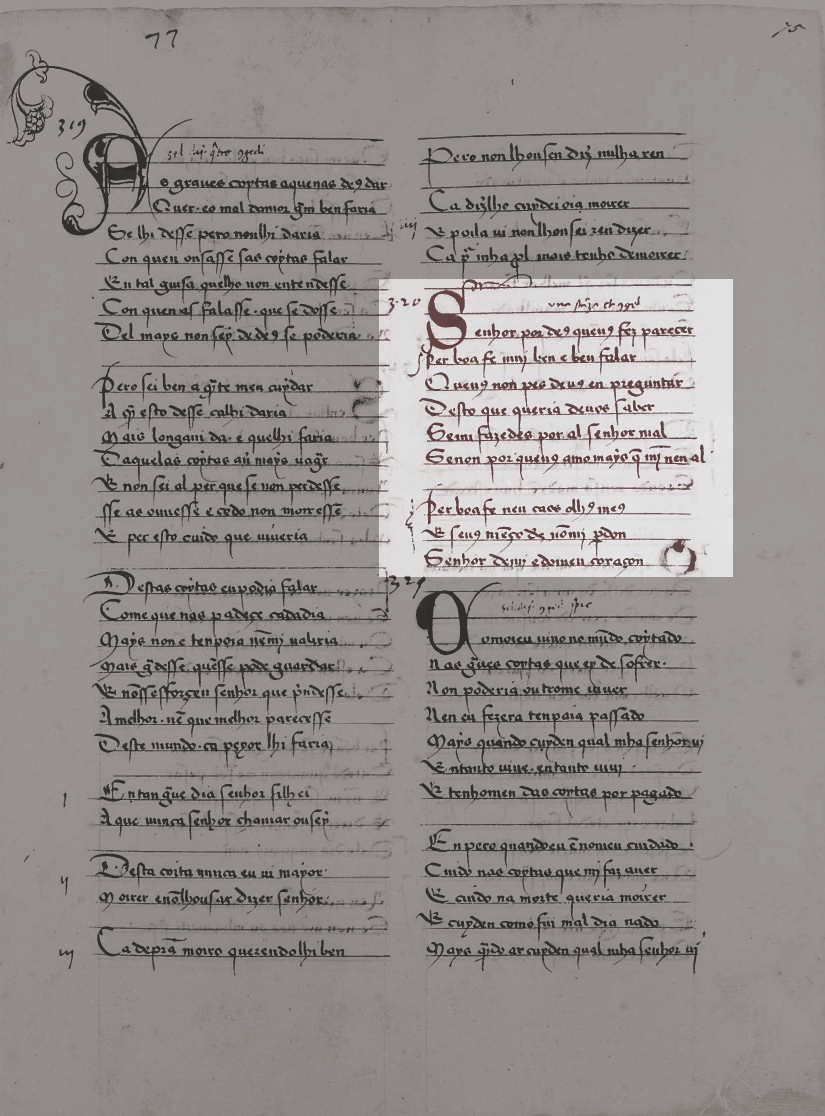 77
75
319
o graues coytas aquenas de9 dar
Quer eo mal damor gm̄ ben faria
Se lhi desse pero nonlhi daria
Con quen ousasse sas coytas falar
En tal guisa quelho non entendesse
Con quen as falasse que se dosse
Del mays non sey de de9 se poderia
Pero sei ben a
meu cuydar
A
esto desse calhi daria
Mais longaui da e quelhi faria
Daquelas coytas au mays uagr
E non sei al per que se non perdesse
sse as ouuesse e cedo non moresse
E per esto cuido que uiueria
Destas coytas eu podia falar
Come que nas padeçe cadadia
Mays non e tenpo ia nemj ualiria
Mais gdesse quesse pode guardar
E nosse sforçen senhor que pndesse
A melhor nē que melhor parecesse
Deste mundo ca peyor lhi faria
j
En tan gue dia senhor filhei
A que nunca senhor chamar ousey
ij
Desta coita nunca eu ui mayor
Moirer enōlhousar dizer senhor
iij
Ca depra moiro querendolhi ben
Pero non lhousen diz nulha ren
Ca dizlho cuydei oia moirer
iiij
E poila ui non lhousei ren dizer
Ca pr inha pl mais tenho de moirer
320
Senhor por de9 quen9 fez pareçer
Per boa fe muj ben e ben falar
Quen9 non pes deuos en preguntar
Desto que queria deuos saber
Semi fazedes por al senhor mal
Senon por quen9 amo mays q̄ mj̄ nen al
Per boa fe neu caos olh9 me9
E seu9
nōmj pdon
Senhor demj edomeu coraçon
321
Ouomoieu uiuo no mūdo coytado
Nas gues coytas que ey de sofrer
Non poderia outrome uiuer
Nen eu fezera tenpaia passado
Mays quando cuyden qual mha senhor uj
Entanto uiue entanto uiui
E tenhomen das coytas por pagado
En pero quandoeu ē nomeu cuidado
Cuido nas coytas que mj faz auer
E cuido na morte queria moirer
E cuyden como fui mal dia nado
Mays qdo ar cuyden qual mha senhor uj